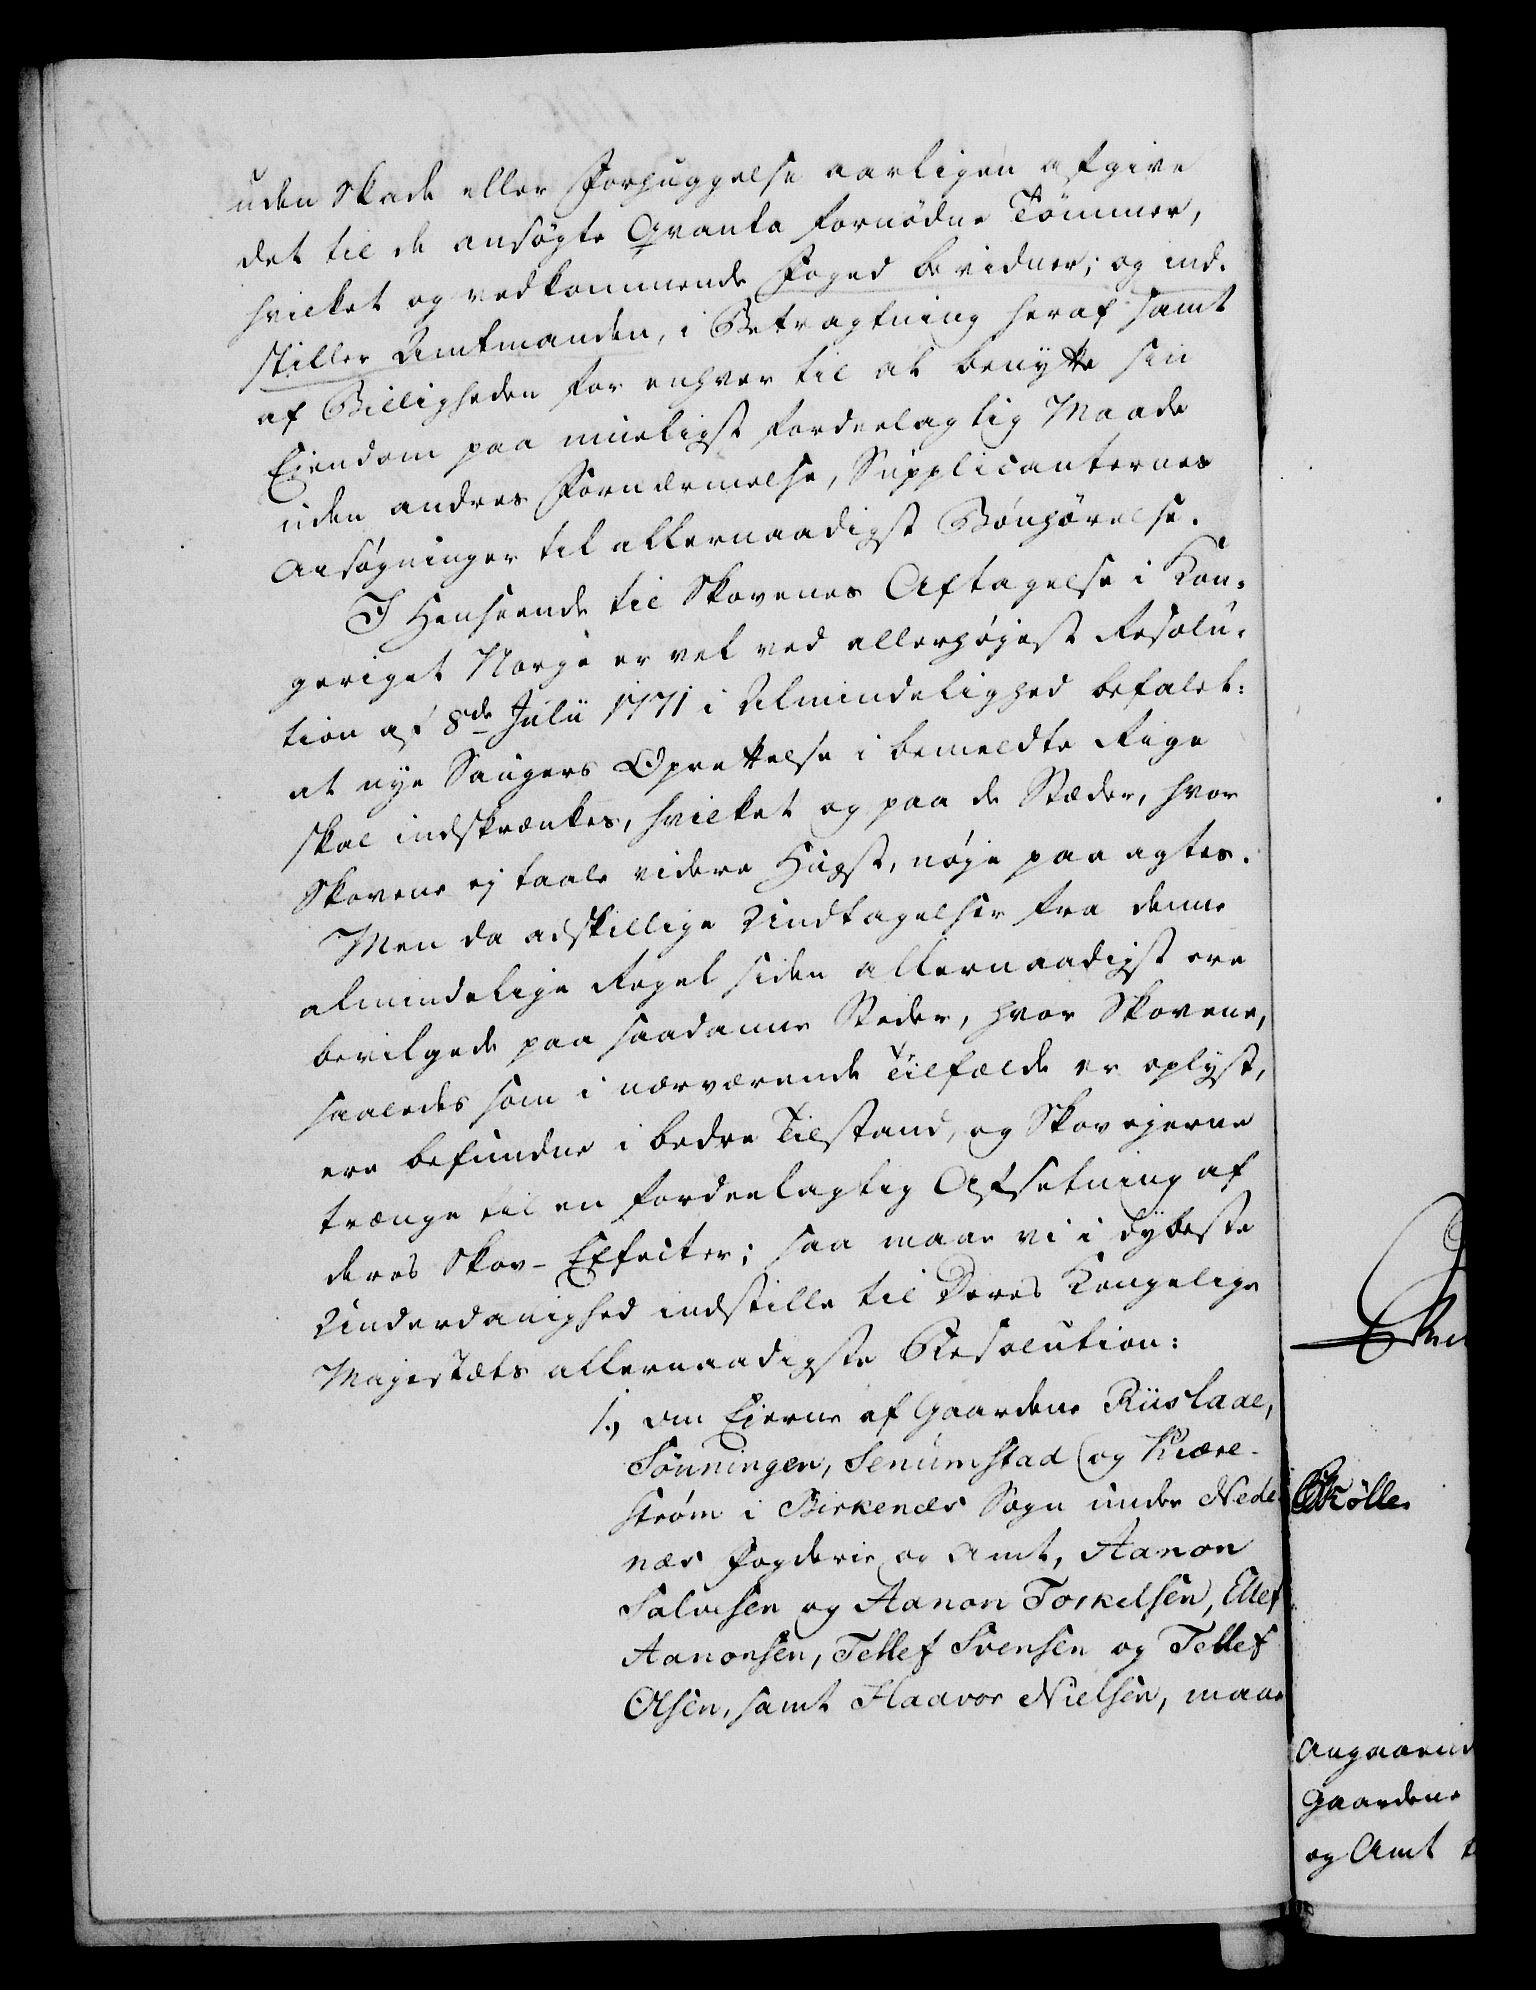 uden Skade eller Forhuggelse aarligen afgive
det til de ansøgte Qvanta fornødne Tømmer,
hvilket og vedkommende Foged bevidner; og ind-
stiller Amtmanden, i Betragtning heraf samt
af Billigheden for enhver til at benytte sin
Eiendom paa mueligst fordeelagtig Maade
uden andres Fornærmelse, Supplicanternes
Ansøgninger til allernaadigst Bønhørelse.
I Henseende til Skovenes Aftagelse i Kon-
geriget Norge er vel ved allerhøjest Resolu-
tion af 8de Julii 1771 i Almindelighed befalet:
at nye Saugers Oprettelse i bemeldte Rige
skal indskrænkes, hvilket og paa de Stæder, hvor
Skovene ej taale videre Hugst, nøje paa agtes.
Men da adskillige Undtagelser fra denne
almindelige Regel siden allernaadigst ere
bevilgede paa saadanne Steder, hvor Skovene,
saaledes som i nærværende Tilfælde er oplyst,
ere befundne i bedre Tilstand, og Skovejerne
trænge til en fordeelagtig Afsetning af
deres Skov-Effecter; saa maae vi i dybeste
Underdanighed indstille til Deres Kongelige
Majestæts allernaadigste Resolution:
1., om Eierne af Gaardene Riislaae,
Sønningen, Senumstad og Kiære-
strøm i Birkenæs Sogn under Nede-
næs Fogderie og Amt, Aanon
Salvesen og Aanon Torkelsen, Ellef
Aanonsen, Tellef Svensen og Tellef
Olsen, samt Haavor Nielsen, maae
Angaaend
Gaardene
og Amt